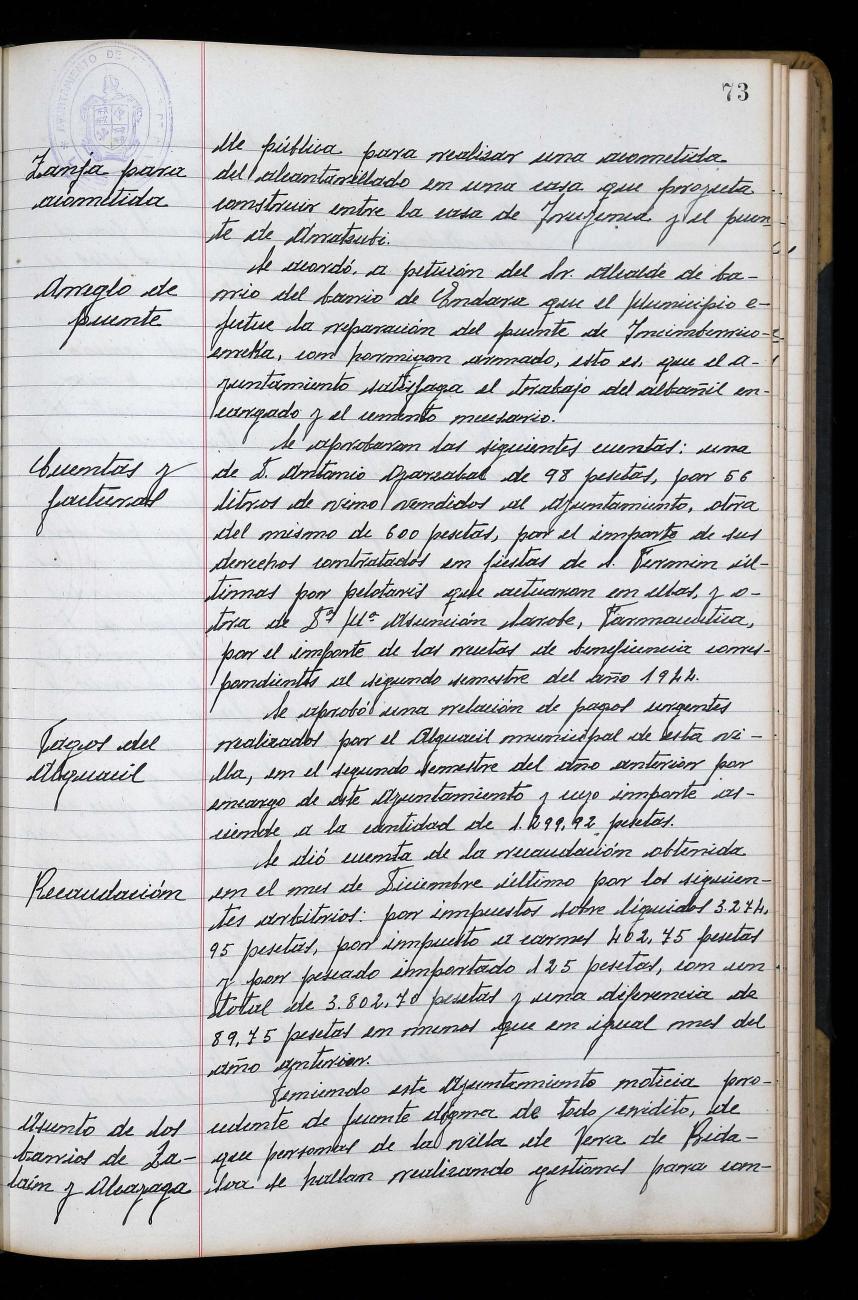 73
AYUNTAMIENTO DE
Zanja para
acometida
lle pública para realizar una acometida
del alcantarillado en una casa que proyecta
construir entre la casa de y el puen-
te de Arratzubi.
Arreglo de
puente
Se acordó, a petición del Sr. Alcalde de ba-
rrio del barrio de Endara que el Municipio e-
jecute la reparación del puente de
erreka, con hormigon armado, esto es, que el a-
yuntamiento satisfaga el trabajo del albañil en-
cargado y el cemento necesario.
Cuentas y
facturas
Se aprobaron las siguientes cuentas: una
de D. Antonio Oyarzabal de 98 pesetas, por 56
litros de vino vendidos al Ayuntamiento, otra
del mismo de 600 pesetas, por el importe de sus
derechos contratados en fiestas de S. Fermin úl-
timas por pelotaris que actuaron en ellas, y o-
tra de Dª Mª Asunción Sarobe, Farmaceutica,
por el importe de las recetas de beneficencia corres-
pondientes al segundo semestre del año 1944.
Pagos del
Alguacil
Se aprobó una relación de pagos urgentes
realizados por el Alguacil municipal de esta vi-
lla, en el segundo semestre del año anterior por
encargo de este Ayuntamiento y cuyo importe as-
ciende a la cantidad de 1.299,92 pesetas.
Recaudación
Se dió cuenta de la recaudación obtenida
en el mes de Diciembre último por los siguien-
tes arbitrios: por impuestos sobre líquidos 3.274,
95 pesetas, por impuesto a carnes 402,75 pesetas
y por pescado importado 125 pesetas, con un
total de 3.802,70 pesetas y una diferencia de
89,75 pesetas en menos que en igual mes del
año anterior.
Asunto de los
barrios de Za-
lain y Alcayaga
Teniendo este Ayuntamiento noticia pro-
cedente de fuente digna de todo crédito, de
que personas de la villa de Vera de Bida-
soa se hallan realizando gestiones para con-